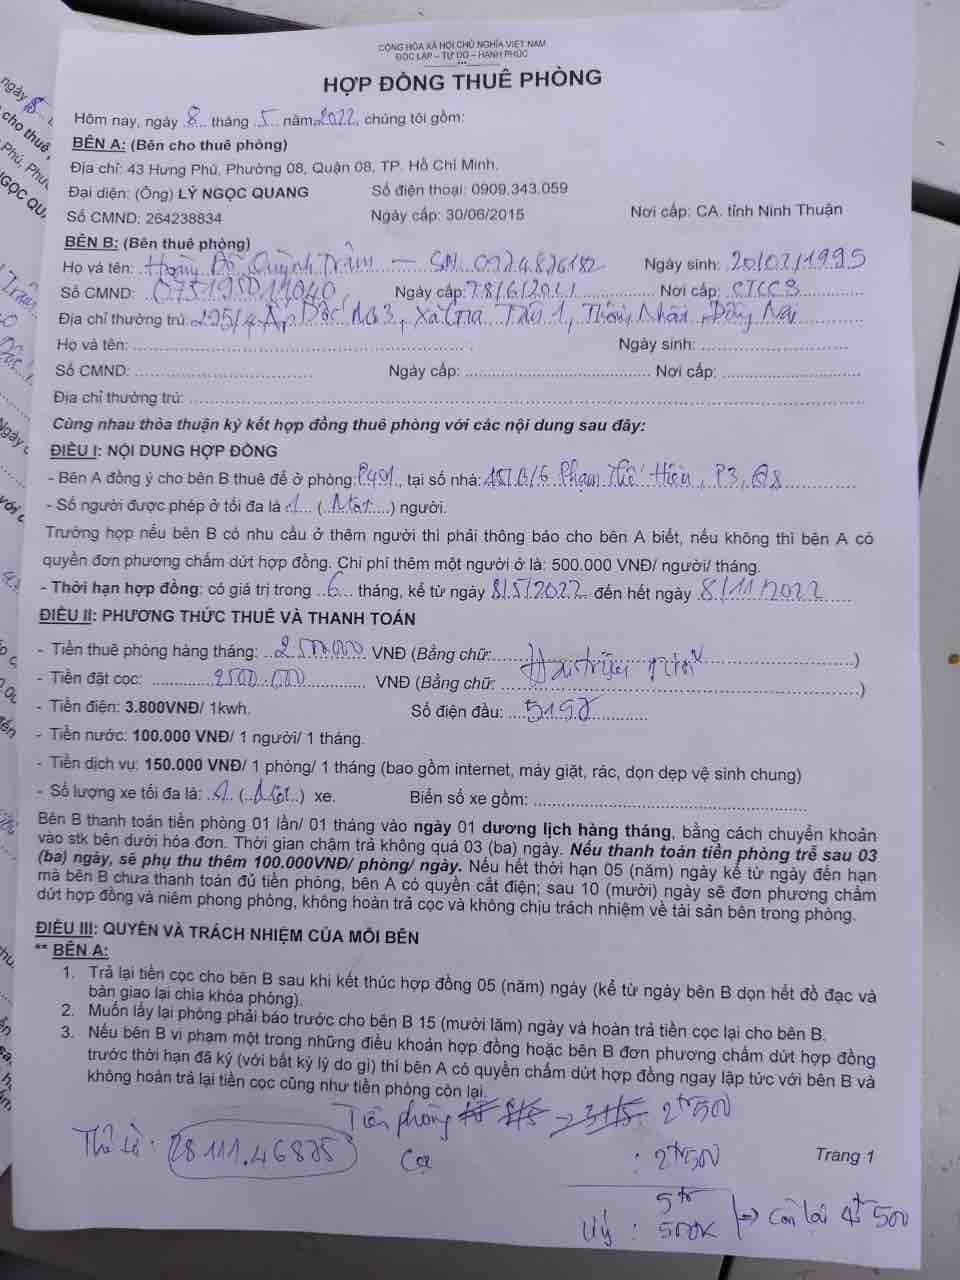 CỘNG HÒA XÃ HỘI CHỦ NGHĨA VIỆT NAM
ĐỘC LẬP – TỰ DO – HẠNH PHÚC
HỢP ĐỒNG THUÊ PHÒNG
Hôm nay, ngày 8 tháng 5 năm 2022, chúng tôi gồm:
BÊN A: (Bên cho thuê phòng)
Địa chỉ: 43 Hưng Phú, Phường 08, Quận 08, TP. Hồ Chí Minh.
Đại diện: (Ông) LÝ NGỌC QUANG Số điện thoại: 0909.343.059
Số CMND: 264238834 Ngày cấp: 30/06/2015 Nơi cấp: CA. tỉnh Ninh Thuận
BÊN B: (Bên thuê phòng)
Họ và tên: Hoàng Đỗ Quỳnh Trâm – SĐT 0974826182 Ngày sinh: 20/02/1995
Số CMND: Ngày cấp: Nơi cấp:
Địa chỉ thường trú: 295/4 Ấp Dốc Mơ 3, Xã Gia Tân 1, Thống Nhất, Đồng Nai
Họ và tên: Ngày sinh:
Số CMND: Ngày cấp: Nơi cấp:
Địa chỉ thường trú:
Cùng nhau thỏa thuận ký kết hợp đồng thuê phòng với các nội dung sau đây:
ĐIỀU I: NỘI DUNG HỢP ĐỒNG
- Bên A đồng ý cho bên B thuê để ở phòng: P401, tại số nhà: Phạm Thế Hiển, P3, Q8
- Số người được phép ở tối đa là 1 (Một) người.
Trường hợp nếu bên B có nhu cầu ở thêm người thì phải thông báo cho bên A biết, nếu không thì bên A có
quyền đơn phương chấm dứt hợp đồng. Chi phí thêm một người ở là: 500.000 VNĐ/ người/ tháng.
- Thời hạn hợp đồng: có giá trị trong 6 tháng, kể từ ngày 8/5/2022 đến hết ngày 8/11/2022
ĐIỀU II: PHƯƠNG THỨC THUÊ VÀ THANH TOÁN
- Tiền thuê phòng hàng tháng: 2500.000 VNĐ (Bằng chữ: Hai triệu rưỡi)
- Tiền đặt cọc: 2500.000 VNĐ (Bằng chữ: )
- Tiền điện: 3.800VNĐ/ 1kwh. Số điện đầu:
- Tiền nước: 100.000 VNĐ/ 1 người/ 1 tháng.
- Tiền dịch vụ: 150.000 VNĐ/ 1 phòng/ 1 tháng (bao gồm internet, máy giặt, rác, dọn dẹp vệ sinh chung)
- Số lượng xe tối đa là: 1 (Một) xe. Biển số xe gồm:
Bên B thanh toán tiền phòng 01 lần/ 01 tháng vào ngày 01 dương lịch hàng tháng, bằng cách chuyển khoản
vào stk bên dưới hóa đơn. Thời gian chậm trả không quá 03 (ba) ngày. Nếu thanh toán tiền phòng trễ sau 03
(ba) ngày, sẽ phụ thu thêm 100.000VNĐ/ phòng/ ngày. Nếu hết thời hạn 05 (năm) ngày kể từ ngày đến hạn
mà bên B chưa thanh toán đủ tiền phòng, bên A có quyền cắt điện; sau 10 (mười) ngày sẽ đơn phương chấm
dứt hợp đồng và niêm phong phòng, không hoàn trả cọc và không chịu trách nhiệm về tài sản bên trong phòng.
ĐIỀU III: QUYỀN VÀ TRÁCH NHIỆM CỦA MỖI BÊN
** BÊN A:
1. Trả lại tiền cọc cho bên B sau khi kết thúc hợp đồng 05 (năm) ngày (kể từ ngày bên B dọn hết đồ đạc và
bàn giao lại chìa khóa phòng).
2. Muốn lấy lại phòng phải báo trước cho bên B 15 (mười lăm) ngày và hoàn trả tiền cọc lại cho bên B.
3. Nếu bên B vi phạm một trong những điều khoản hợp đồng hoặc bên B đơn phương chấm dứt hợp đồng
trước thời hạn đã ký (với bất kỳ lý do gì) thì bên A có quyền chấm dứt hợp đồng ngay lập tức với bên B và
không hoàn trả lại tiền cọc cũng như tiền phòng còn lại.
Tiền phòng 8/5 → 31/5: 2tr500
Thẻ từ: 28111.46875
Cọc : 2tr500
Trang 1
5tr
: 500K → còn lại 4tr500